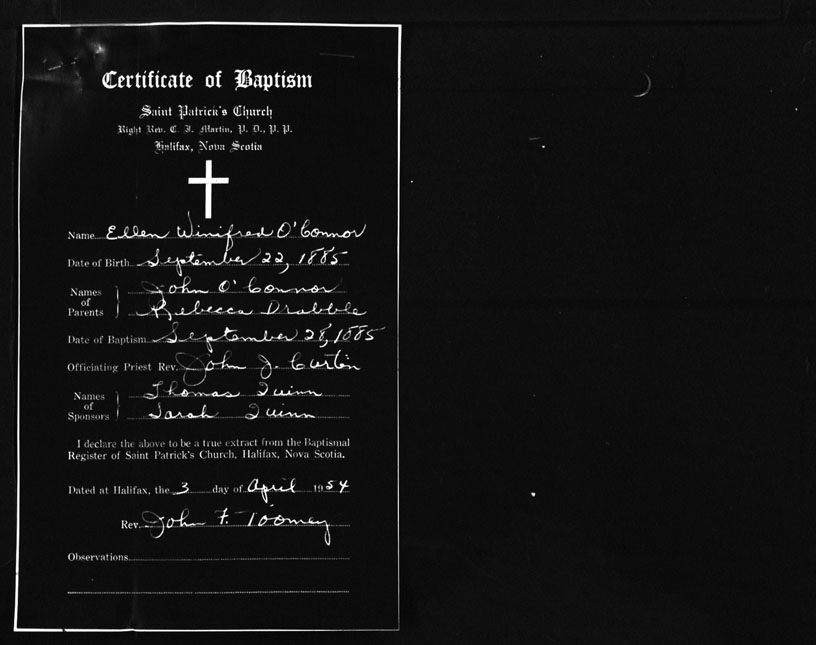 Certificate of Baptism
Saint Patrick's Church
Right Rev. C. F. Martin, P. D., P. P.
Halifax, Nova Scotia
Name Ellen Winifred O'Connor
Date of Birth September 22, 1885
Names of Parents John O'Connor
Rebecca Drabble
Date of Baptism September 28, 1885
Officiating Priest Rev. John J. Curtin
Names of Sponsors Thomas Quinn
Sarah Quinn
I declare the above to be a true extract from the Baptismal
Register of Saint Patrick's Church, Halifax, Nova Scotia.
Dated at Halifax, the 3 day of April 1954
Rev. John F. Toomey
Observations